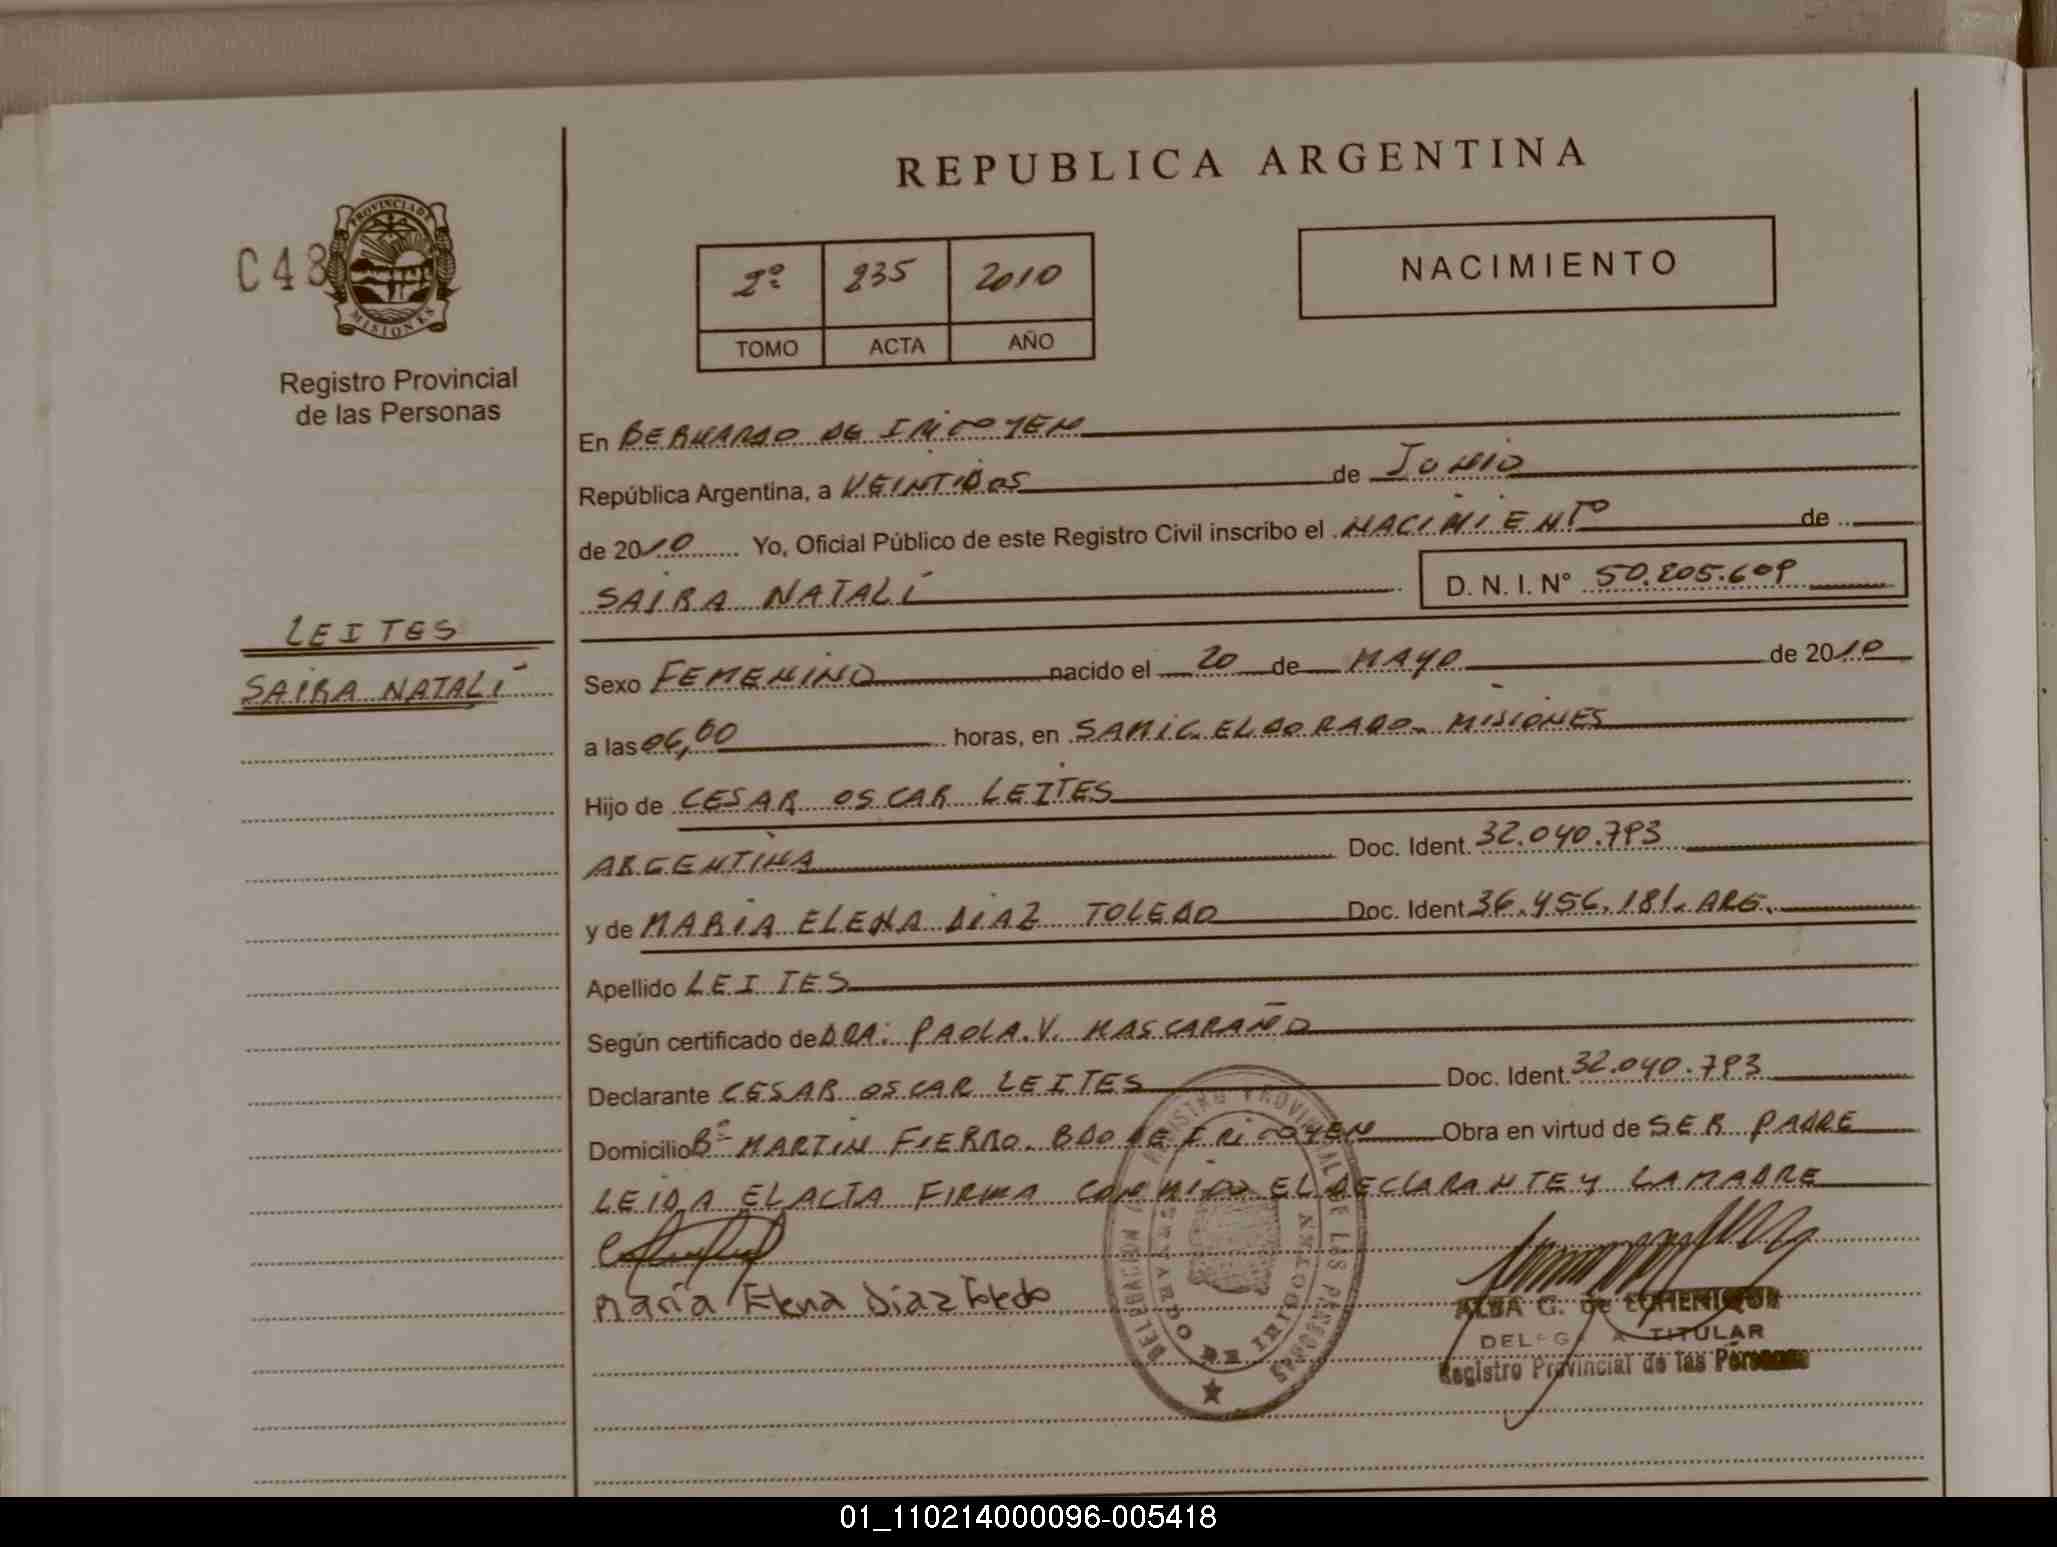 REPUBLICA ARGENTINA
C48
PROVINCIA DE
MISIONES
Registro Provincial
de las Personas
2º 235 2010
TOMO ACTA AÑO
NACIMIENTO
En BERNARDO DE IRIGOYEN
República Argentina, a VEINTIDOS de JUNIO
de 2010 Yo, Oficial Público de este Registro Civil inscribo el NACIMIENTO de
SAIRA NATALÍ D. N. I. Nº 50.205.609
LEITES
SAIRA NATALÍ
Sexo FEMENINO nacido el 20 de MAYO de 2010
a las 06,00 horas, en SAMIC. ELDORADO. MISIONES
Hijo de CESAR OSCAR LEITES
ARGENTINA Doc. Ident. 32.040.793
y de MARIA ELENA DIAZ TOLEDO Doc. Ident 36.456.181. ARG.
Apellido LEITES
Según certificado de DRA: PAOLA. V. MASCARAÑO
Declarante CESAR OSCAR LEITES Doc. Ident. 32.040.793
Domicilio Bº MARTIN FIERRO. BDO DE IRIGOYEN Obra en virtud de SER PADRE
LEIDA EL ACTA FIRMA CONMIGO EL DECLARANTE Y LA MADRE
Maria Elena Diaz Toledo
DELEGACION REGISTRO PROVINCIAL DE LAS PERSONAS
BERNARDO DE IRIGOYEN
ALBA G. de
DELEGADA TITULAR
Registro Provincial de las Personas
01_110214000096-005418